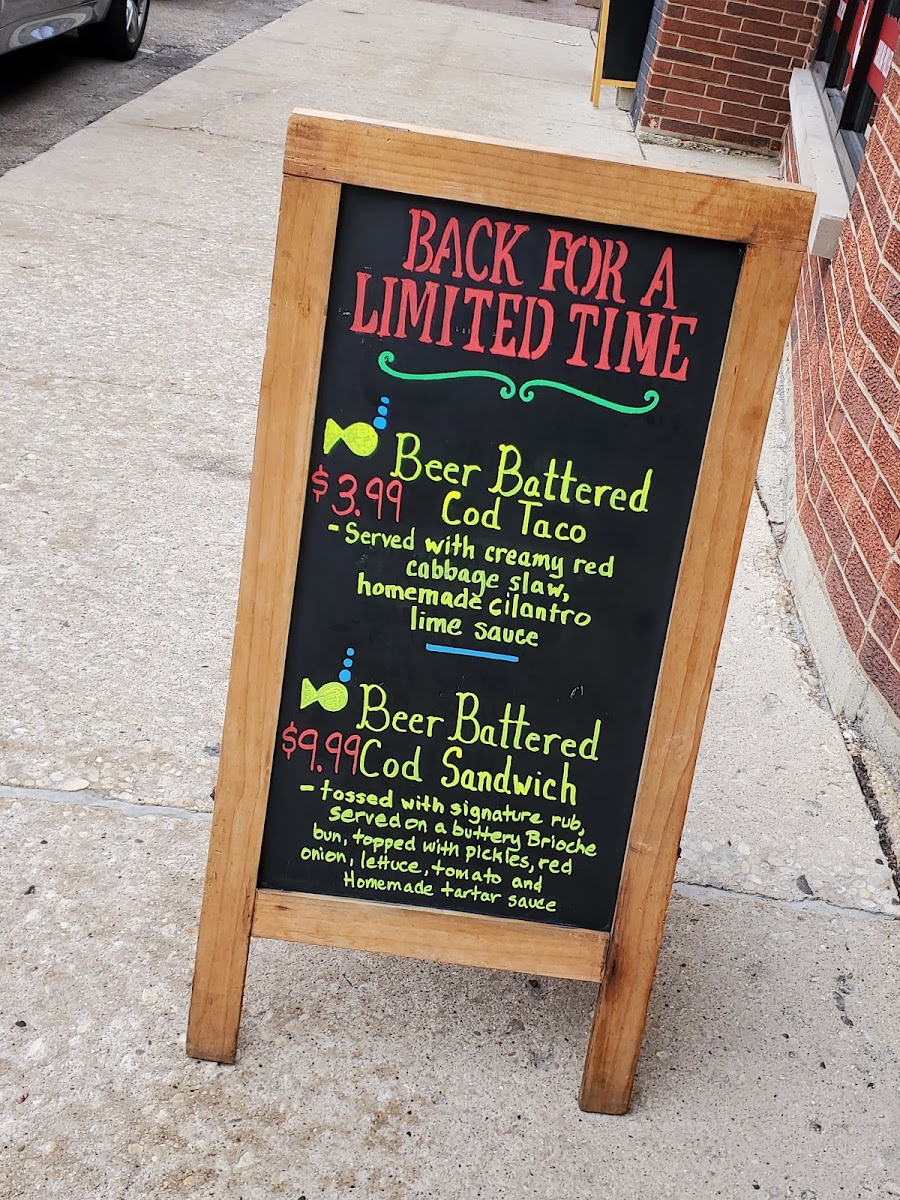 BACK FOR A
LIMITED TIME
Beer Battered
$3.99 Cod Taco
- Served with creamy red
cabbage slaw,
homemade cilantro
lime sauce
Beer Battered
$9.99 Cod Sandwich
- tossed with signature rub,
served on a buttery Brioche
bun, topped with pickles, red
onion, lettuce, tomato and
Homemade tartar sauce